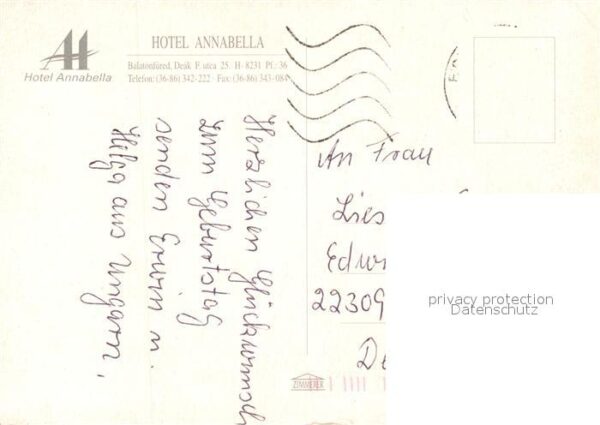 AH
Hotel Annabella
HOTEL ANNABELLA
Balatonfüred, Deák F. utca 25. H- 8231 Pf.: 36
Telefon: (36-86) 342-222 · Fax: (36-86) 343-084
Herzlichen Glückwunsch
zum Geburtstag
senden Erwin u.
Helga aus Ungarn.
An Frau
Lies
Edw
22309
De
privacy protection
Datenschutz
ZIMMERER